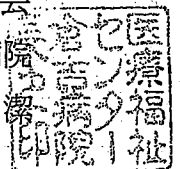 医療福祉
センター
倉吉病院
印
院 潔